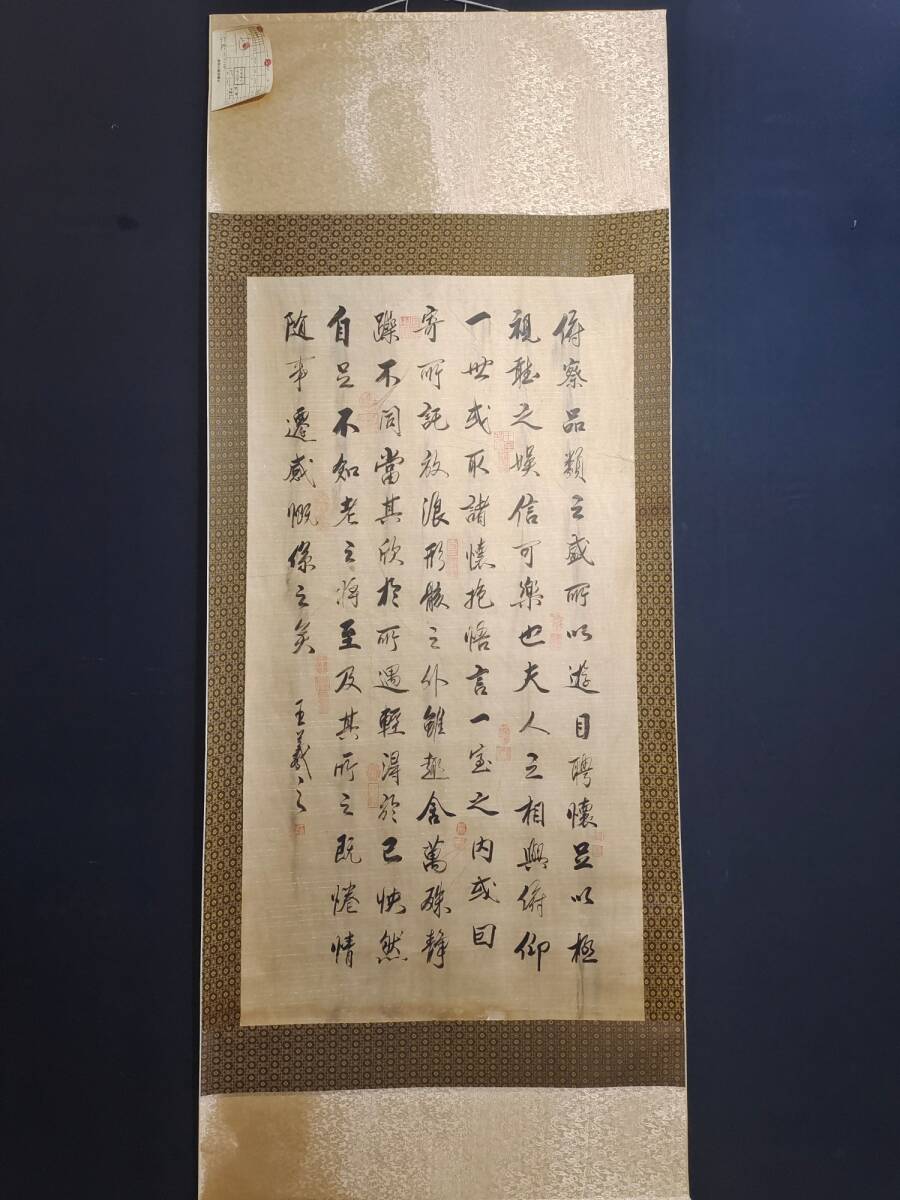 俯察品類之盛所以遊目聘懷足以極
視聽之娛信可樂也夫人之相與俯仰
一世或取諸懷抱悟言一室之内或因
寄所託放浪形骸之外雖趣舍萬殊静
躁不同當其欣於所遇輕得於己快然
自足不知老之將至及其所之既惓情
随事遷感慨係之矣 王羲之